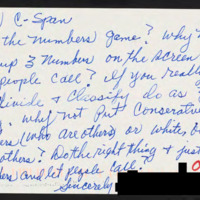 ) C-Span
the numbers game? Why
up 3 Numbers on the screen
people call? If you really
divide & Classify do as
why not Put Conservat
ers (who are others) or white, b
others? Do the right thing & just
bers and let people call?
Sincerely